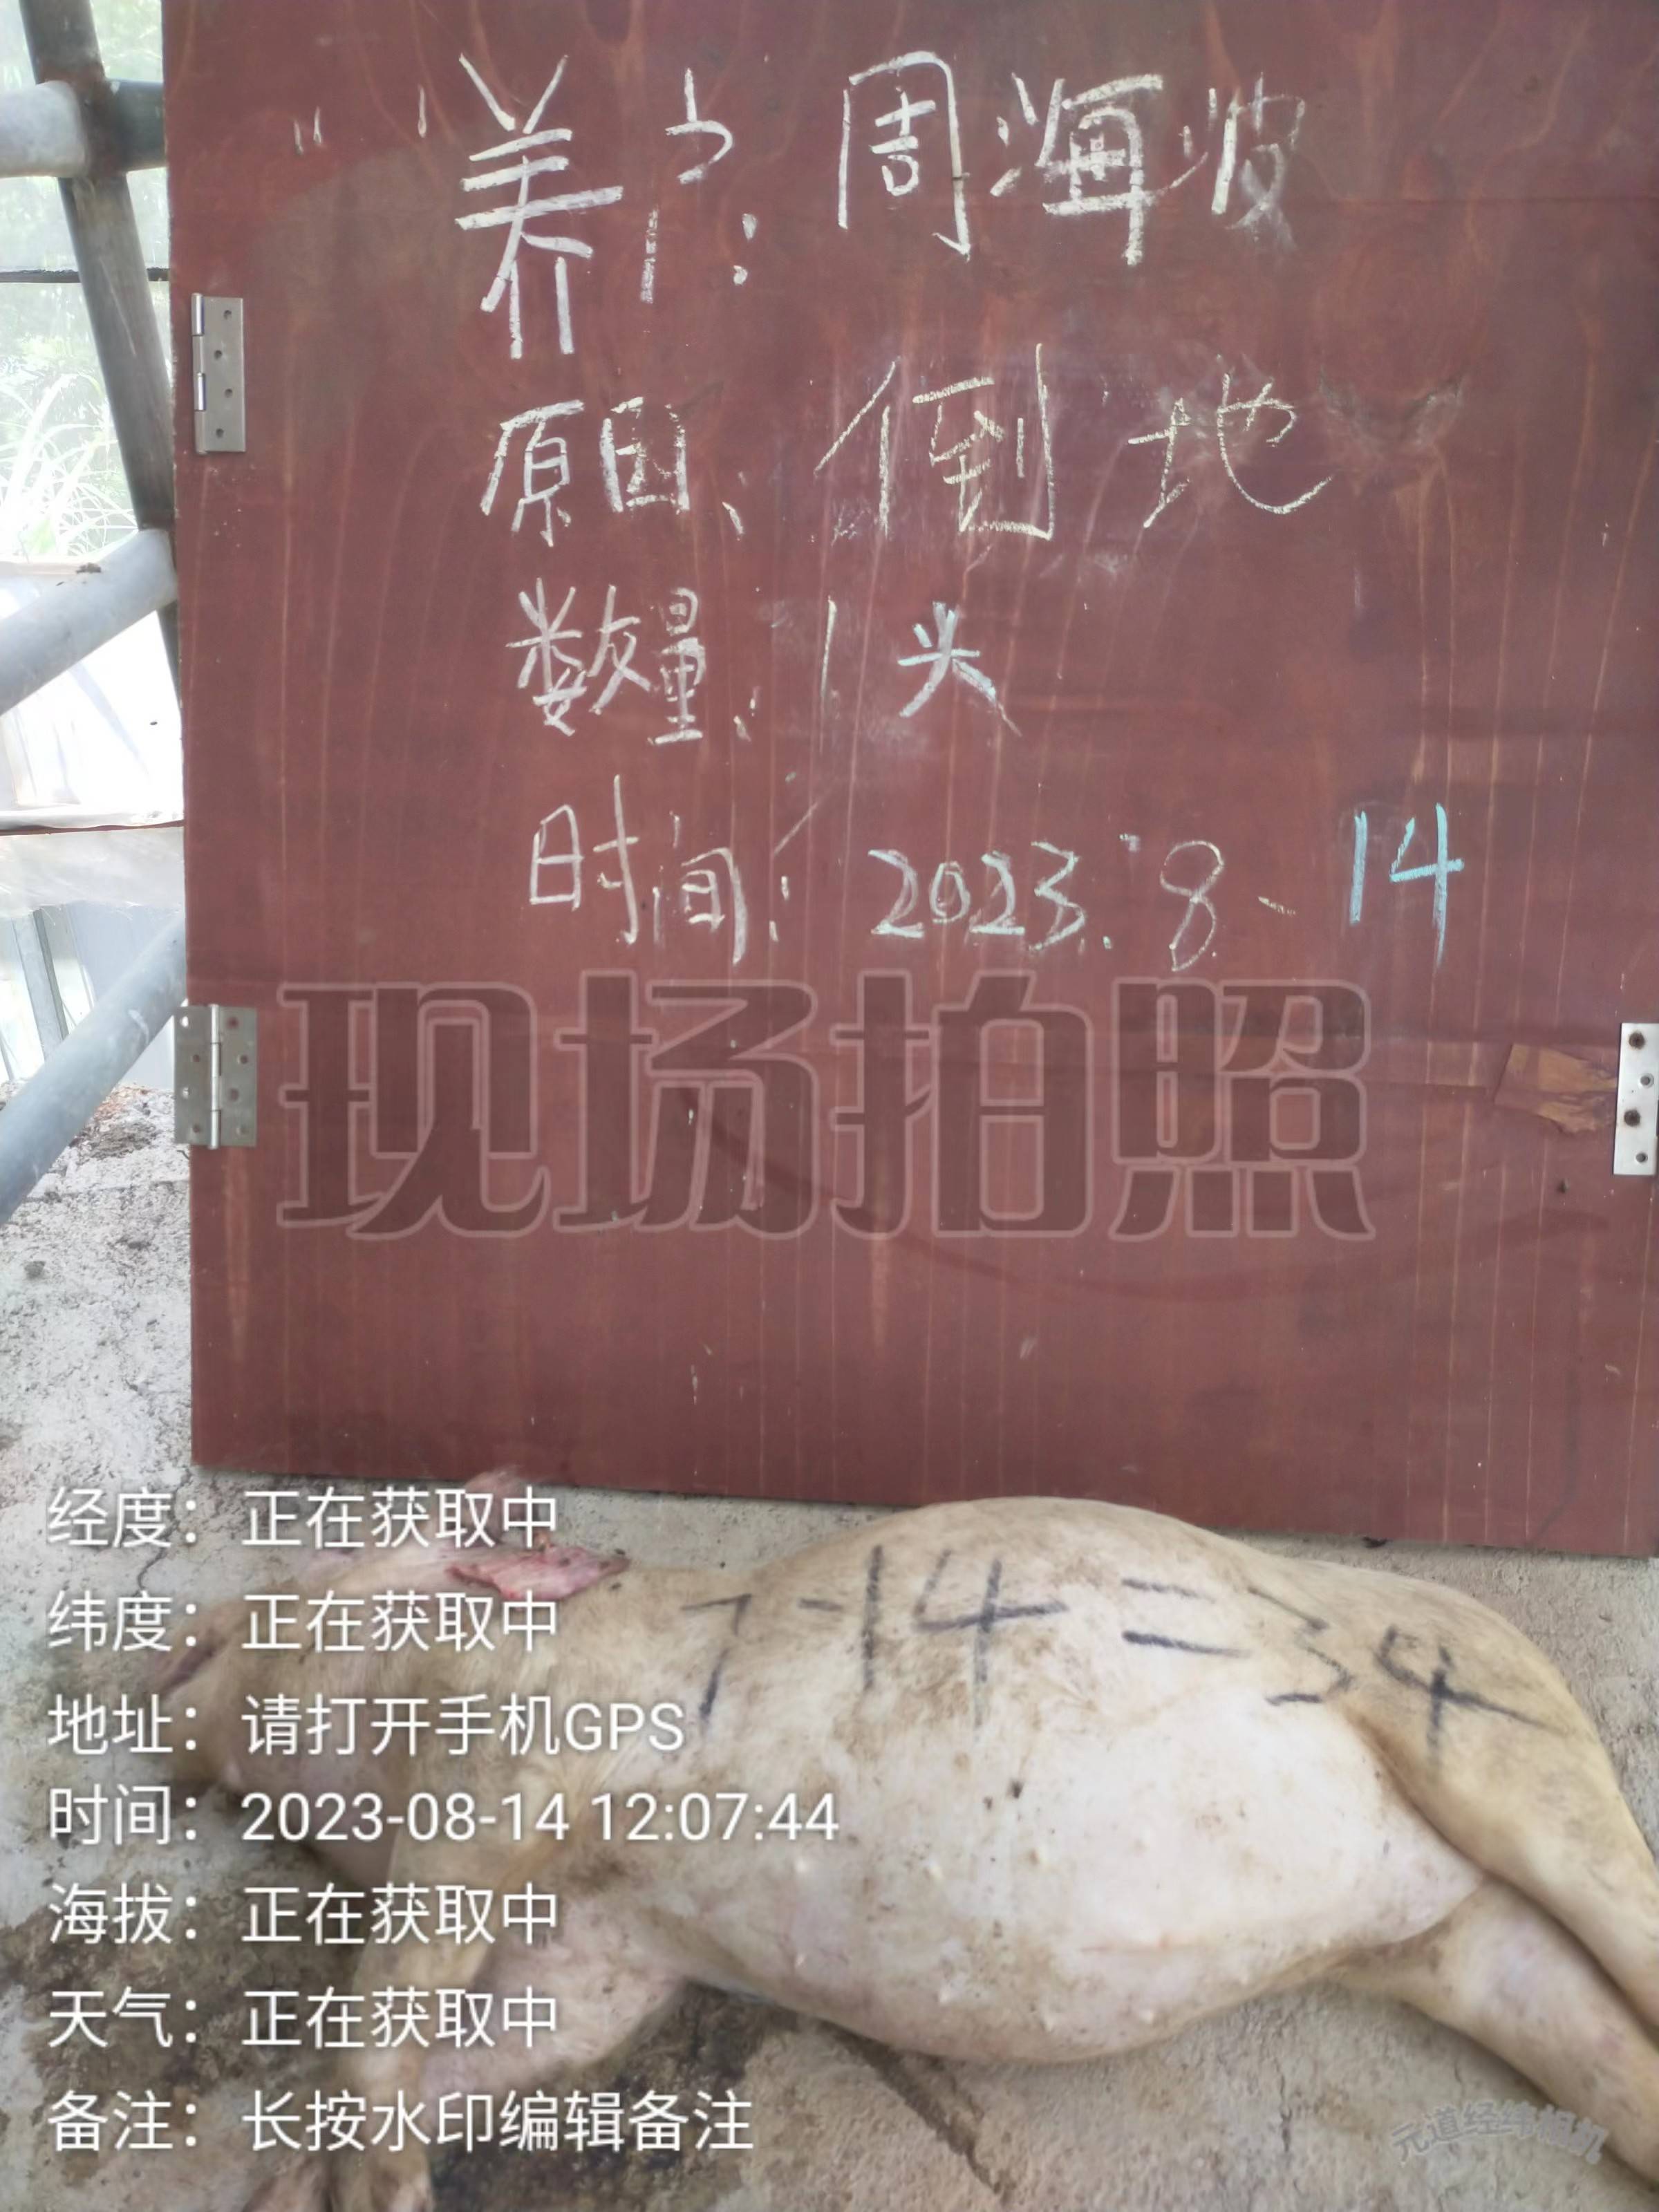 养户:周海波
原因:倒地
数量:1头
时间:2023.8.14
现场拍照
7-14=34
经度：正在获取中
纬度：正在获取中
地址：请打开手机GPS
时间：2023-08-14 12:07:44
海拔：正在获取中
天气：正在获取中
备注：长按水印编辑备注
元道经纬相机